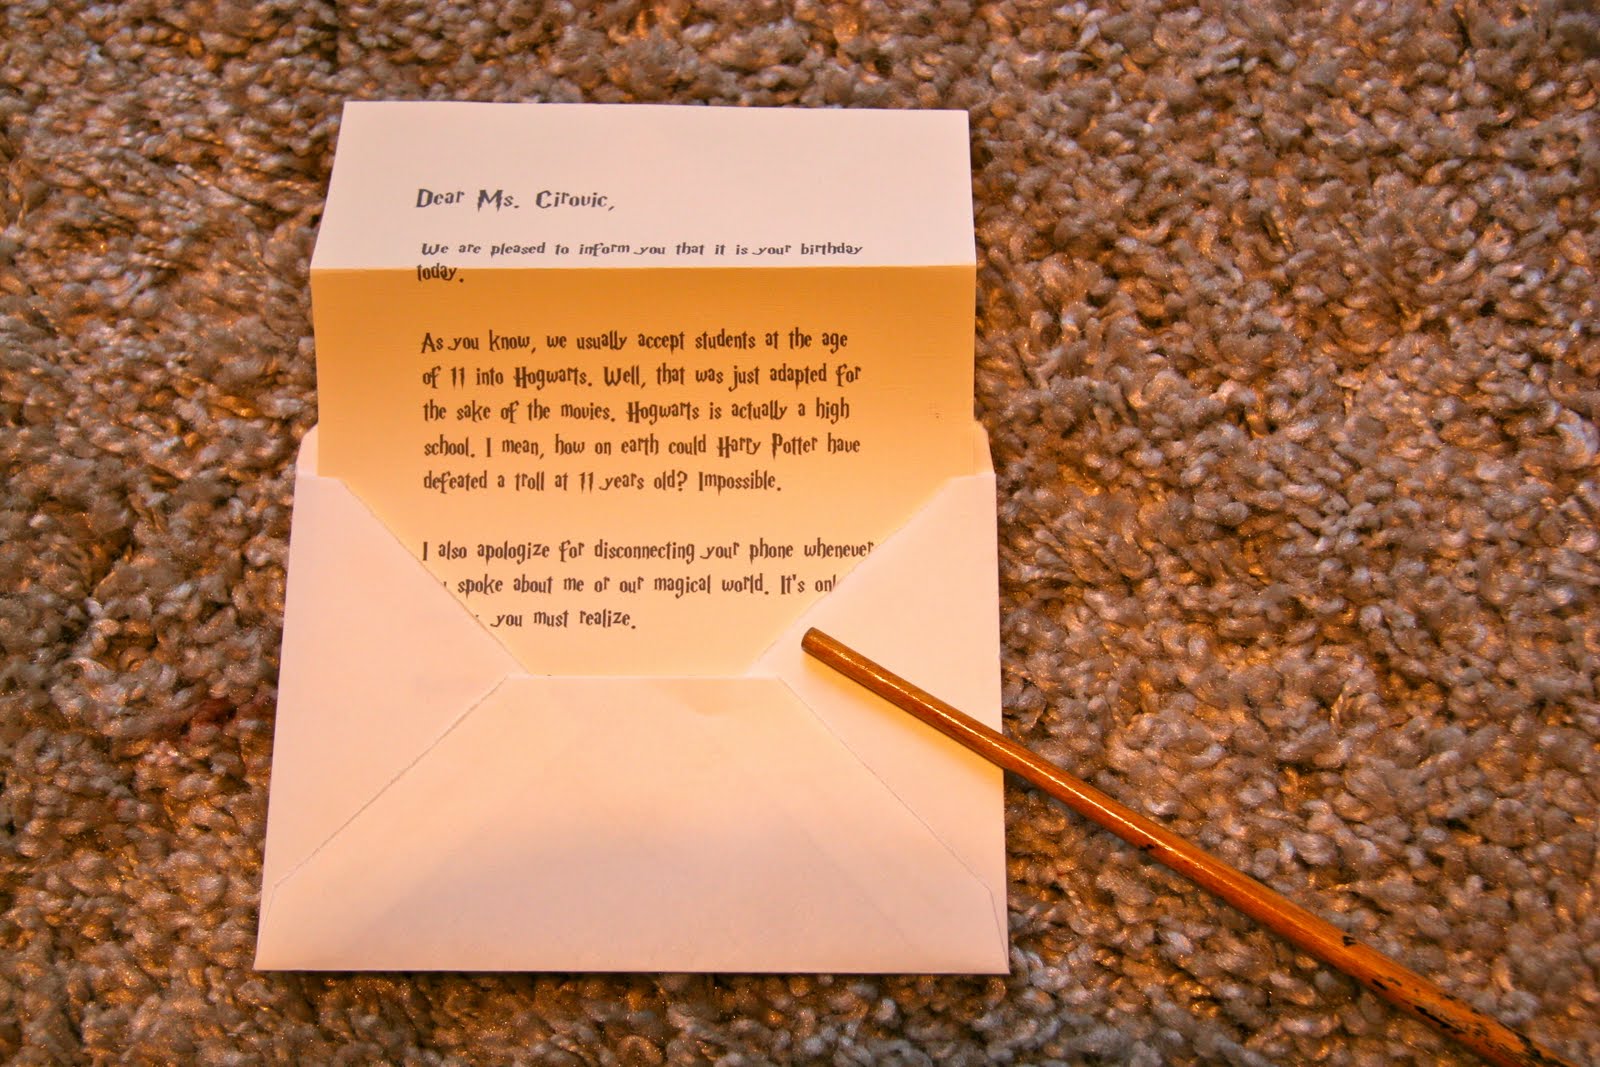 Dear Ms. Cirovic,
We are pleased to inform you that it is your birthday
today.
As you know, we usually accept students at the age
of 11 into Hogwarts. Well, that was just adapted for
the sake of the movies. Hogwarts is actually a high
school. I mean, how on earth could Harry Potter have
defeated a troll at 11 years old? Impossible.
I also apologize for disconnecting your phone whenever
spoke about me or our magical world. It's
you must realize.